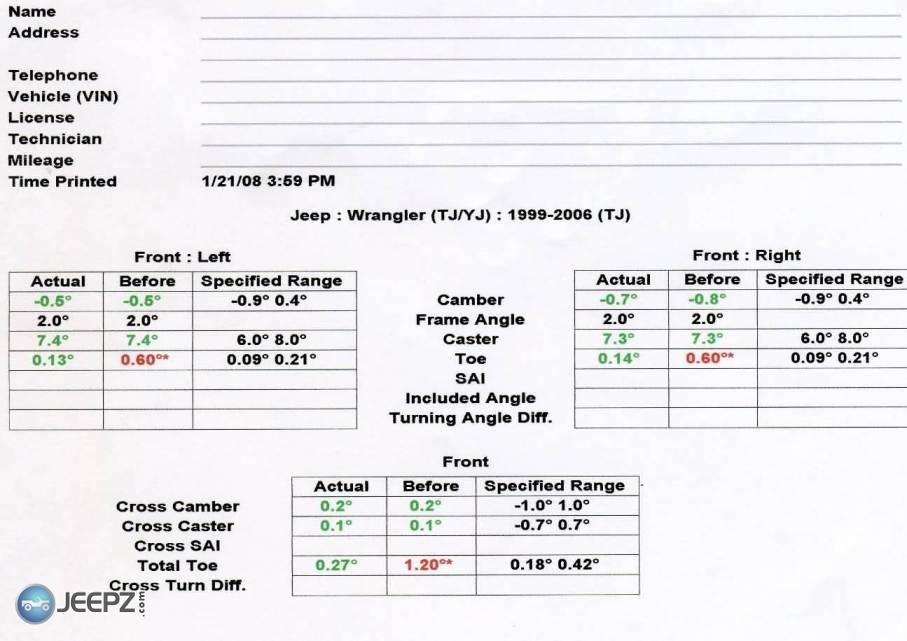 Name
Address
Telephone
Vehicle (VIN)
License
Technician
Mileage
Time Printed 1/21/08 3:59 PM
Jeep : Wrangler (TJ/YJ) : 1999-2006 (TJ)
Front : Left
Actual Before Specified Range
-0.5° -0.5° -0.9° 0.4°
2.0° 2.0°
7.4° 7.4° 6.0° 8.0°
0.13° 0.60°* 0.09° 0.21°
Camber
Frame Angle
Caster
Toe
SAI
Included Angle
Turning Angle Diff.
Front : Right
Actual Before Specified Range
-0.7° -0.8° -0.9° 0.4°
2.0° 2.0°
7.3° 7.3° 6.0° 8.0°
0.14° 0.60°* 0.09° 0.21°
Front
Actual Before Specified Range
Cross Camber 0.2° 0.2° -1.0° 1.0°
Cross Caster 0.1° 0.1° -0.7° 0.7°
Cross SAI
Total Toe 0.27° 1.20°* 0.18° 0.42°
Cross Turn Diff.
JEEPZ.com